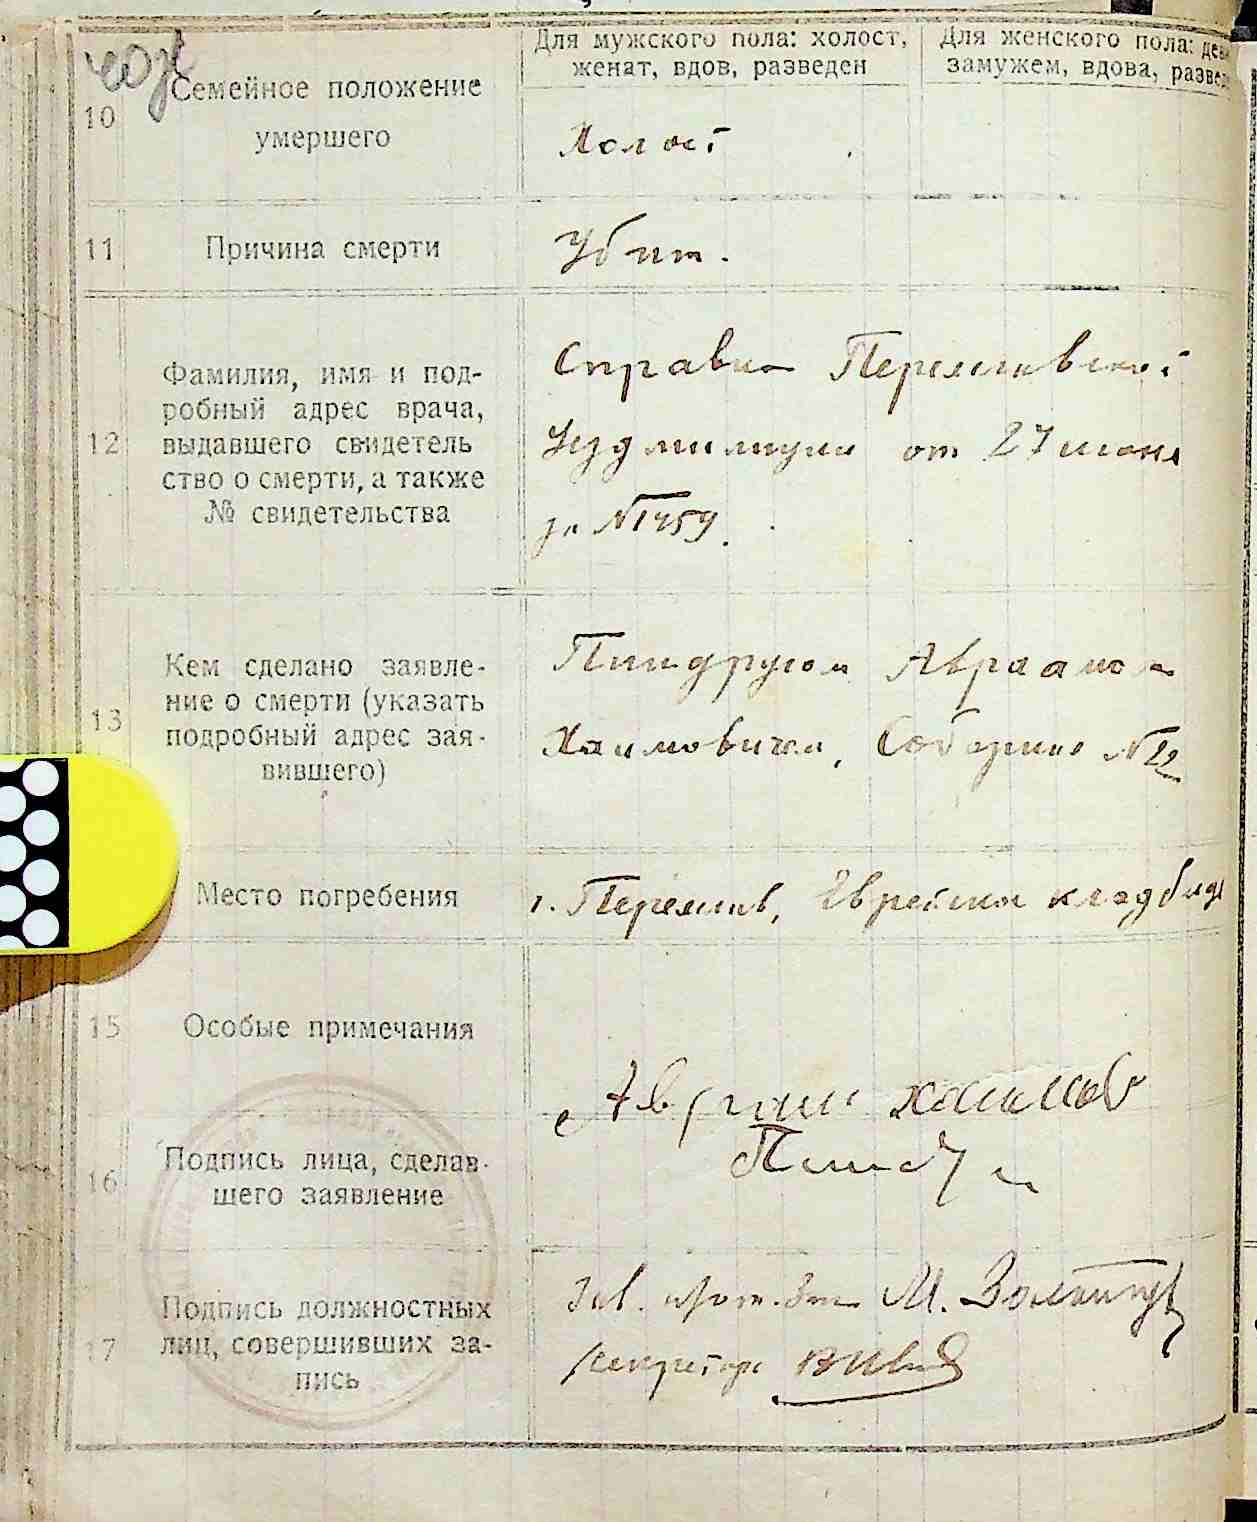 Для мужского пола: холост,
женат, вдов, разведен
Для женского пола:
замужем, вдова,
10
Семейное положение
умершего
Холост
11
Причина смерти
Убит.
12
Фамилия, имя и под-
робный адрес врача,
выдавшего свидетель
ство о смерти, а также
№ свидетельства
Справка Переяславской
Уездмилиции от 27 июня
за №1459.
13
Кем сделано заявле-
ние о смерти (указать
подробный адрес зая-
вившего)
Авраамом
Хаимовичем, Соборная №
Место погребения
г. Переяслав, Еврейское кладбище
15
Особые примечания
16
Подпись лица, сделав-
шего заявление
17
Подпись должностных
лиц, совершивших за-
пись
Зав. М.
Секретарь